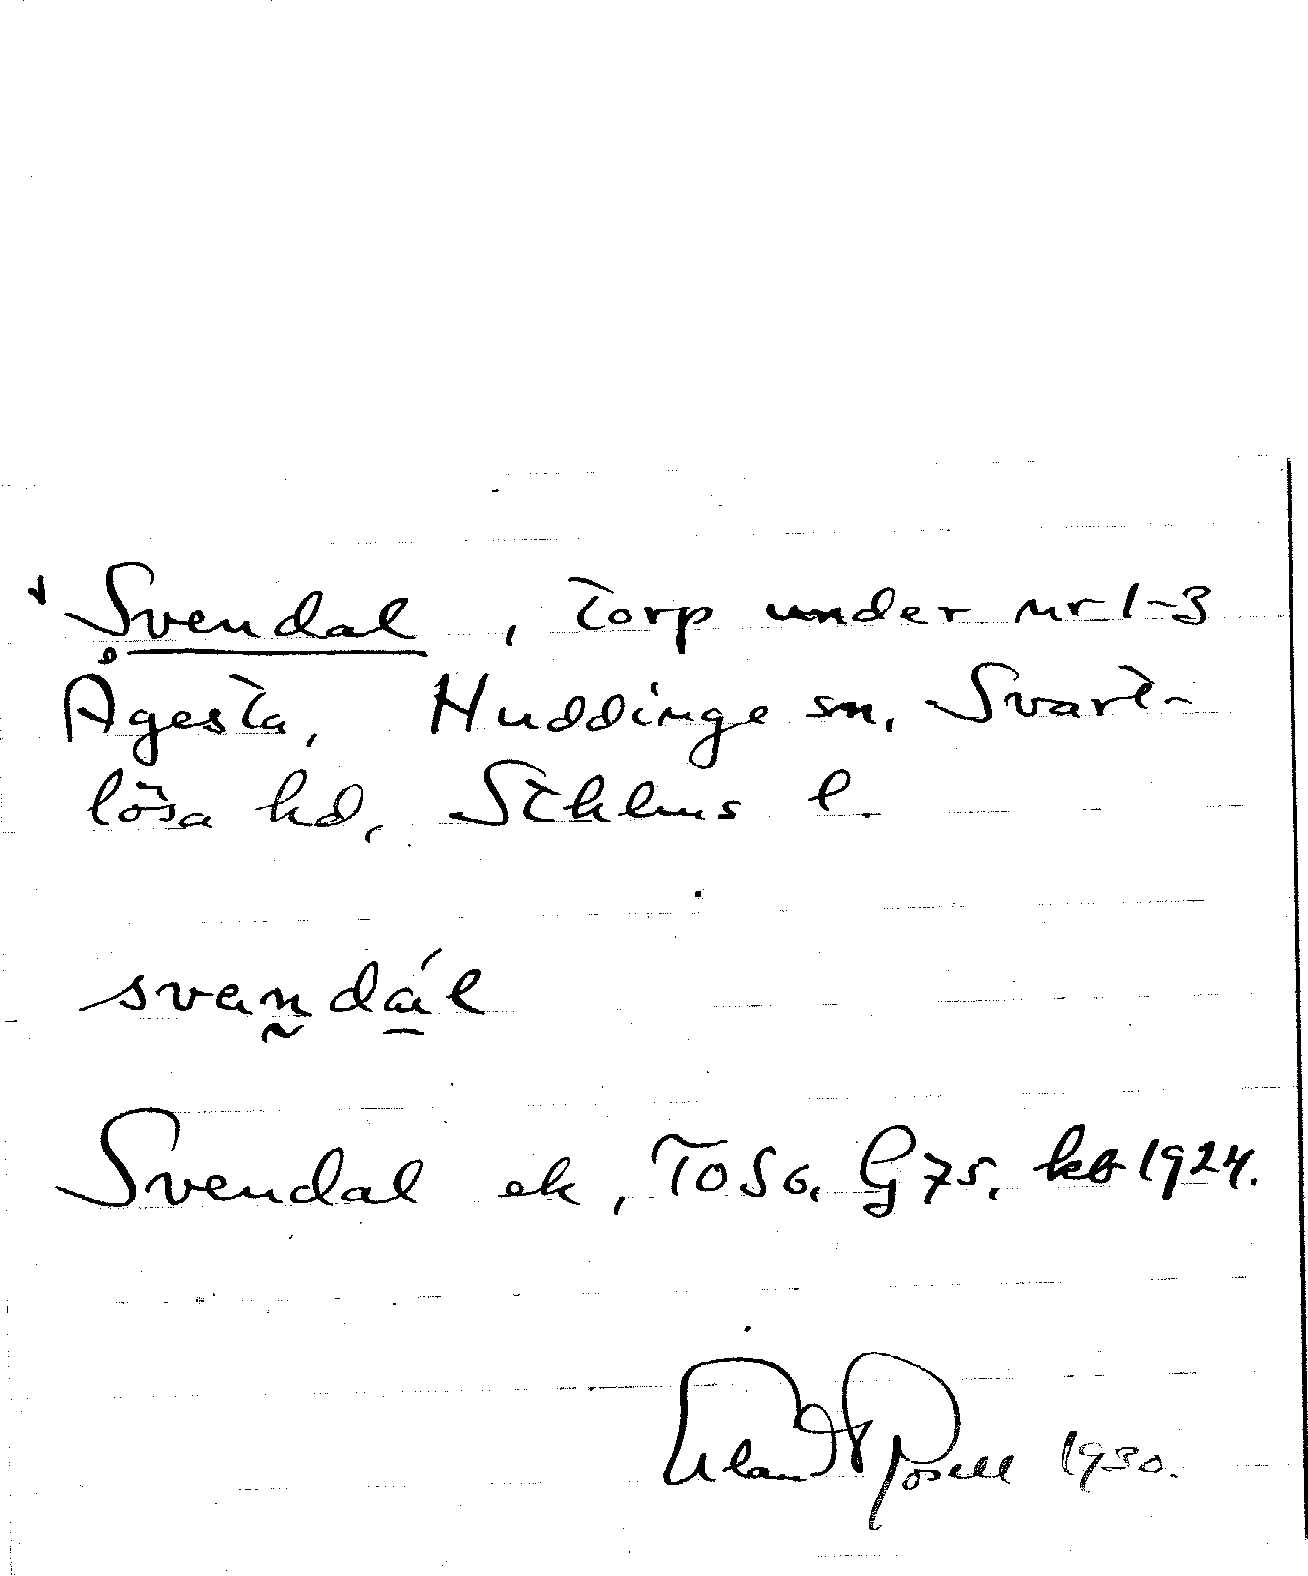 Svendal, torp under nr 1-3
Ågesta, Huddinge sn, Svart-
lösa hd, Sthlms l.
svand̲ál
Svendal ek, TOSö. G 75. kb 1924.
Erland Rosell 1930.